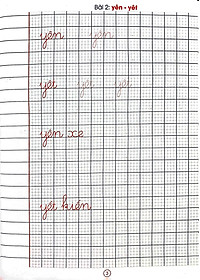 Bài 2: yên - yêt
yên yên
yêt yêt yêt
yên xe
yết kiến